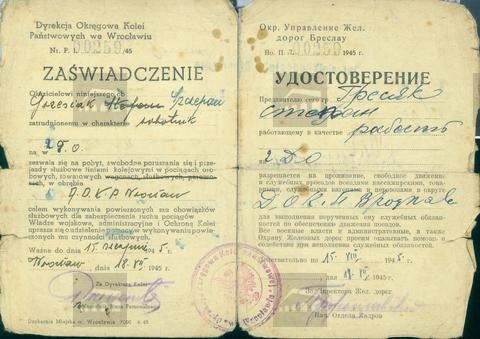 Dyrekcja Okręgowa Kolei
Państwowych we Wrocławiu
Nr. P. I. 00259/45
ZAŚWIADCZENIE
Okazicielowi niniejszego ob.
Grzesiak Stefan Szczepan
zatrudnionemu w charakterze robotnik
na 2 D.O.
zezwala się na pobyt, swobodne poruszanie się i prze-
jazdy służbowe liniami kolejowymi w pociągach oso-
bowych, towarowych
w obrębie
D.O.K.P. Wrocław
celem wykonywania powierzonych mu obowiązków
służbowych dla zabezpieczenia ruchu pociągów
Władze wojskowe, administracyjne i Ochronę Kolei
uprasza się o udzielenie pomocy w wykonywaniu powie-
rzonych mu czynności służbowych.
Ważne do dnia 15 sierpnia 1945 r.
Wrocław dn. 18.VII 1945 r.
Za Dyrektora Kolei
Drukarnia Miejska w Wrocławiu
Окр. Управление Жел.
дорог Бреслау
Но. П. 00259 1945 г.
УДОСТОВЕРЕНИЕ
Предъявителю сего гр. Гресяк
Стефан
работающему в качестве работ
на 2 Д О
разрешается на проживание, свободное движение
и служебный проезд поездами пассажирскими, товар-
ными, служебными
в округе
Д.О.К.П Вроцлав
для выполнения порученных ему служебных обязанностей
по обеспечению движения поездов.
Все военные власти и административные, а также
Охрану Железных дорог просим оказывать помощь и
содействие при исполнении служебных обязанностей.
Действительно по 15 VIII 1945 г.
18 VII 1945 г.
Директора Жел. дорог
Нач. Отдела Кадров